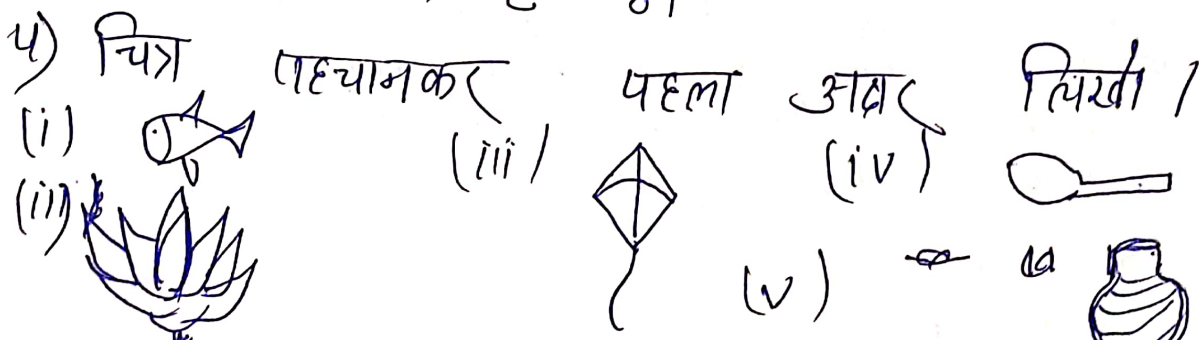 ५) चित्र पहचानकर पहला अक्षर लिखो ।
(i)
(iii)
(iv)
(ii)
(v)